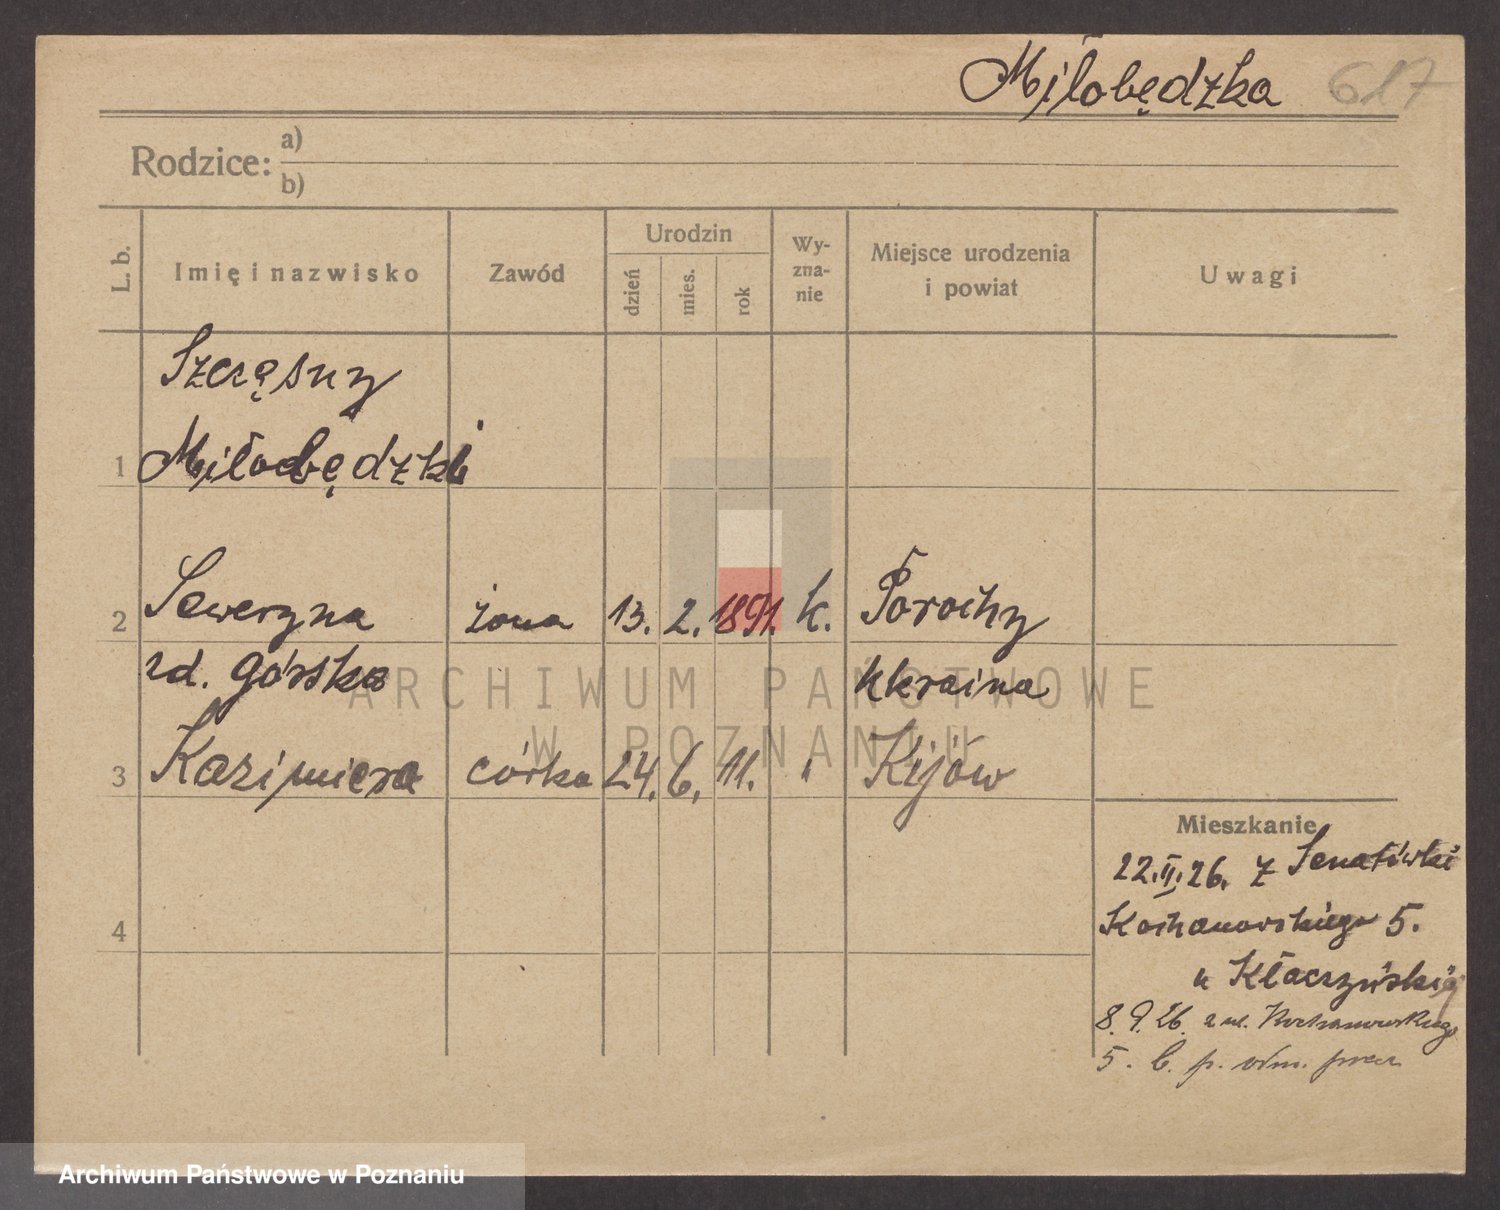 Miłobędzka 617
Rodzice: a)
b)
L. b. Imię i nazwisko Zawód Urodzin dzień mies. rok Wy-zna-nie Miejsce urodzenia i powiat Uwagi
Szczęsny
1 Miłobędzki
2 Seweryna żona 13. 2. 1891. k. Porochy
zd. Górska Ukraina
3 Kazimiera córka 24. 6. 11. " Kijów
4
Mieszkanie
22.II.26. z Senatówki
Kochanowskiego 5.
u Kłaczyńskiej
8.9.26. z ul. Kochanowskiego
5. b. p.
ARCHIWUM PAŃSTWOWE
W POZNANIU
Archiwum Państwowe w Poznaniu